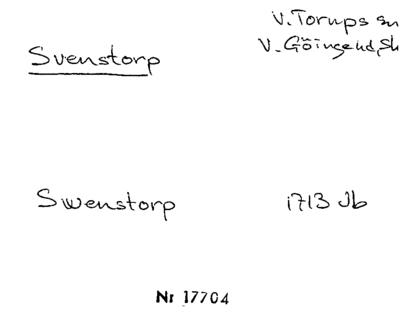 Svenstorp
V. Torups sn
V. Göinge hd, Sk
Swenstorp 1713 Jb
Nr 17704